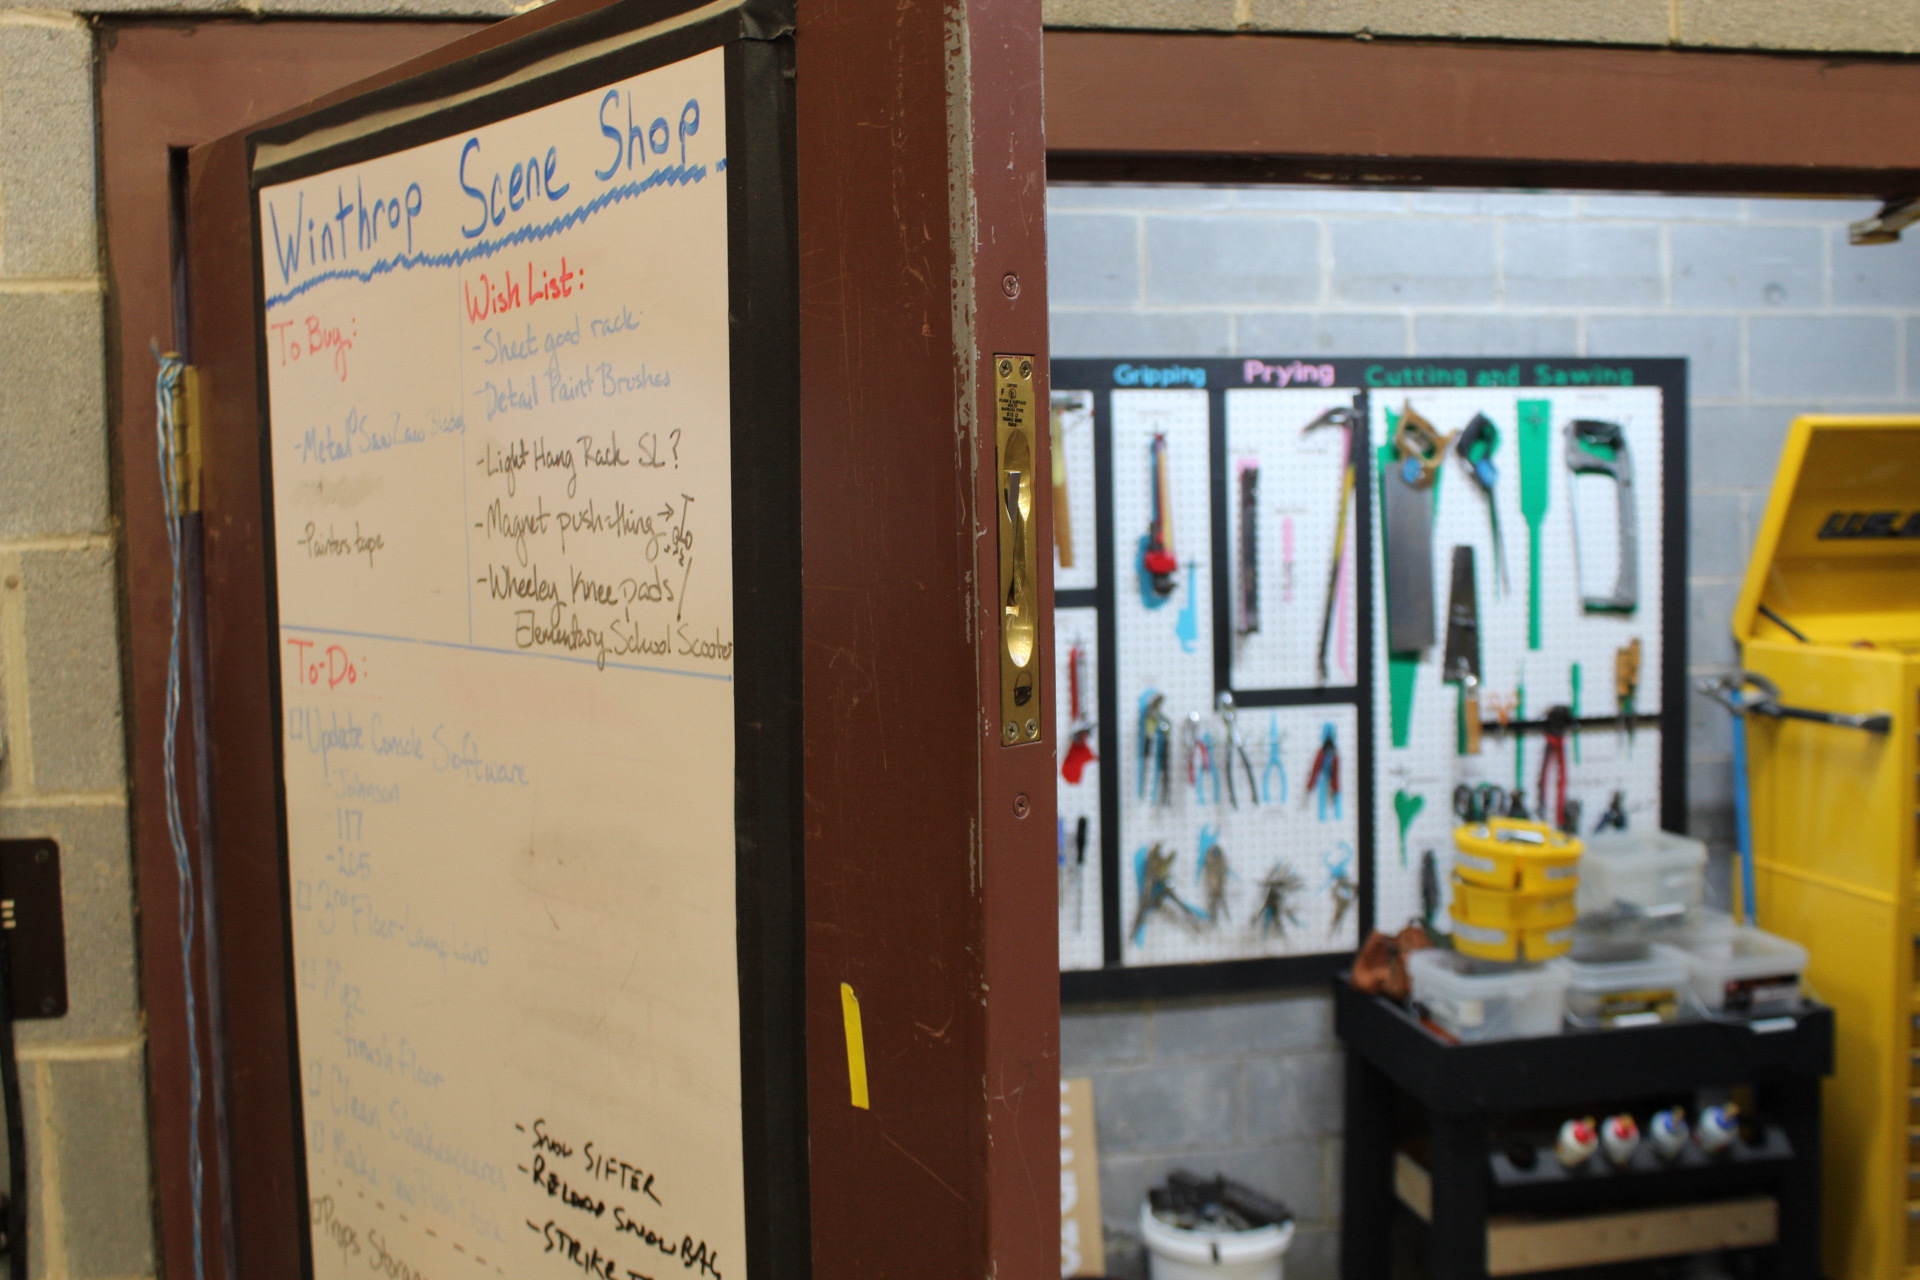 Winthrop Scene Shop
To Buy:
-Metal SawZaw Blades
-Painters tape
Wish List:
-Sheet good rack
-Detail Paint Brushes
-Light Hang Rack SL?
-Magnet push-thing →
-Wheeley Knee pads/
Elementary School Scooter
To-Do:
Update Console Software
-Johnson
-117
-205
3rd Floor
floor
Clean Shakespeares
Make new Push Stick
Props Storage
-SNOW SIFTER
-RELOAD SNOW BAG
-STRIKE
Gripping
Prying
Cutting and Sawing